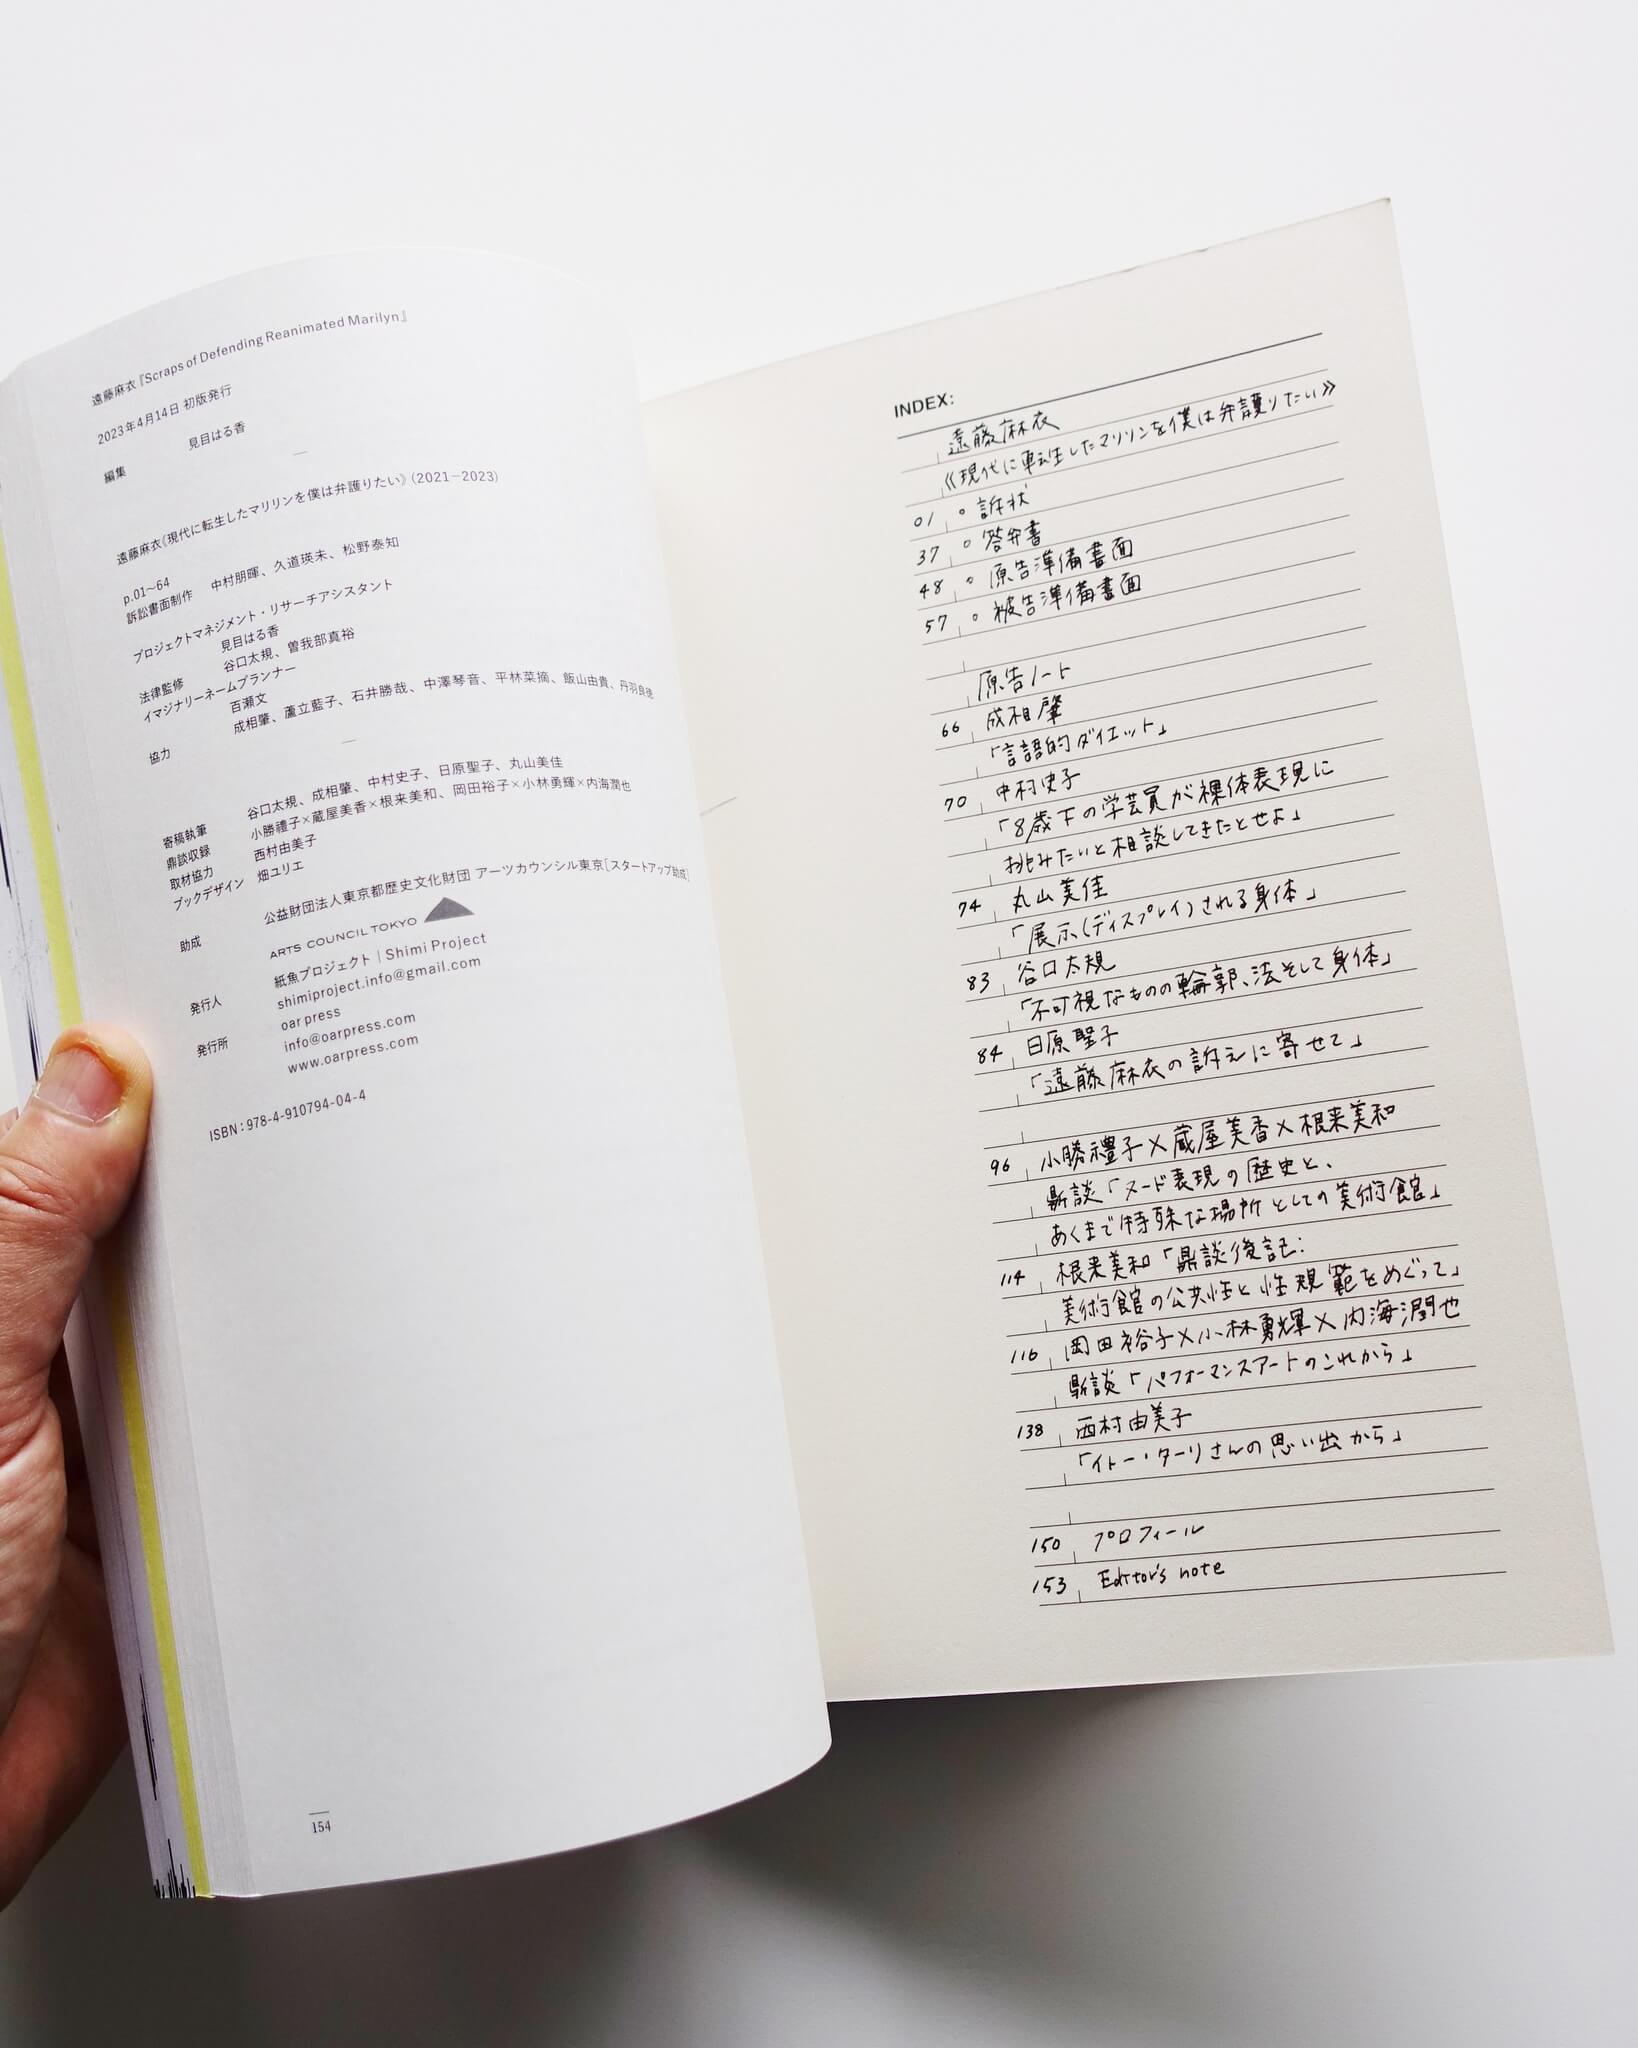 遠藤麻衣『Scraps of Defending Reanimated Marilyn』
2023年4月14日 初版発行
編集 見目はる香
遠藤麻衣《現代に転生したマリリンを僕は弁護りたい》(2021−2023)
p.01〜64
訴訟書面制作 中村朋暉、久道瑛未、松野泰知
プロジェクトマネジメント・リサーチアシスタント
見目はる香
法律監修 谷口太規、曽我部真裕
イマジナリーネームプランナー
百瀬文
協力 成相肇、蘆立藍子、石井勝哉、中澤琴音、平林菜摘、飯山由貴、丹羽良徳
寄稿執筆 谷口太規、成相肇、中村史子、日原聖子、丸山美佳
鼎談収録 小勝禮子×蔵屋美香×根来美和、岡田裕子×小林勇輝×内海潤也
取材協力 西村由美子
ブックデザイン 畑ユリエ
助成 公益財団法人東京都歴史文化財団 アーツカウンシル東京[スタートアップ助成]
ARTS COUNCIL TOKYO
発行人 紙魚プロジェクト | Shimi Project
shimiproject.info@gmail.com
発行所 oar press
info@oarpress.com
www.oarpress.com
ISBN : 978-4-910794-04-4
154
INDEX:
遠藤麻衣
《現代に転生したマリリンを僕は弁護りたい》
01 ◦ 訴状
37 ◦ 答弁書
48 ◦ 原告準備書面
57 ◦ 被告準備書面
原告ノート
66 成相肇
「言語的ダイエット」
70 中村史子
「8歳下の学芸員が裸体表現に
挑みたいと相談してきたとせよ」
74 丸山美佳
「展示(ディスプレイ)される身体」
83 谷口太規
「不可視なものの輪郭、法そして身体」
84 日原聖子
「遠藤麻衣の訴えに寄せて」
96 小勝禮子×蔵屋美香×根来美和
鼎談「ヌード表現の歴史と、
あくまで特殊な場所としての美術館」
114 根来美和「鼎談後記:
美術館の公共性と性規範をめぐって」
116 岡田裕子×小林勇輝×内海潤也
鼎談「パフォーマンスアートのこれから」
138 西村由美子
「イトー・ターリさんの思い出から」
150 プロフィール
153 Editor's note